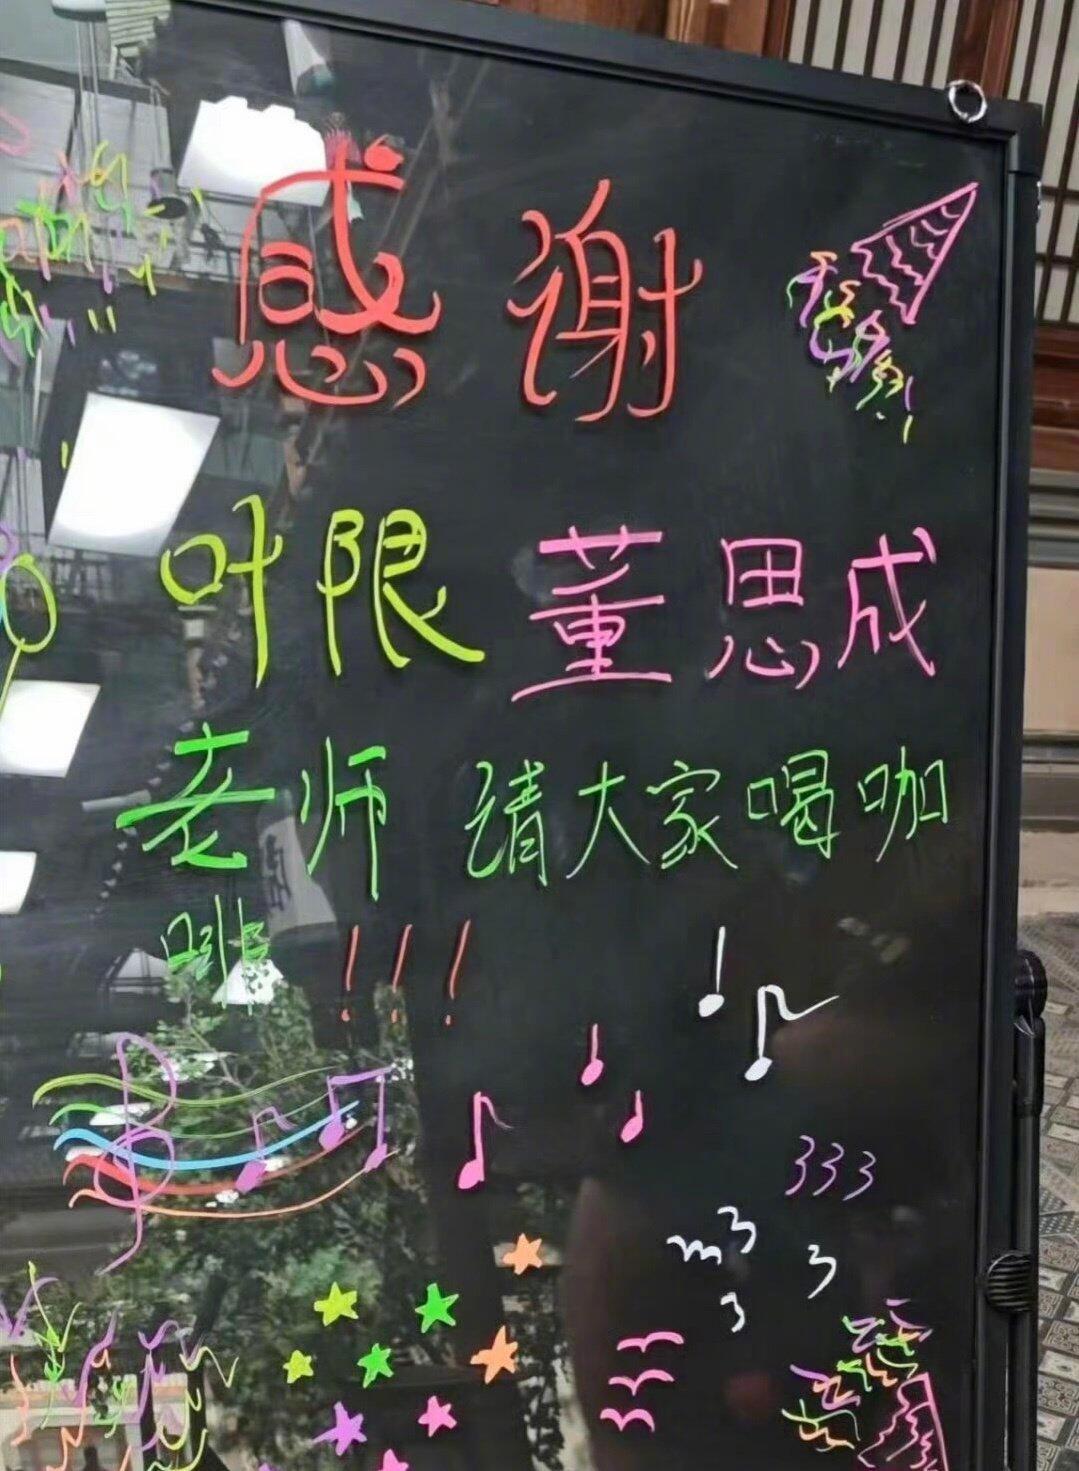 感谢
叶限 董思成
老师 请大家喝咖
啡!!!
333
m3
3
3